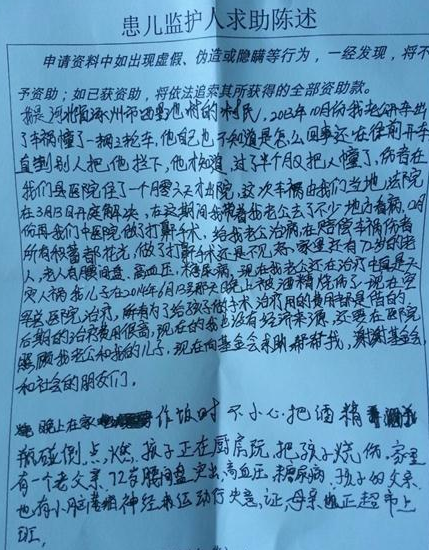 患儿监护人求助陈述
申请资料中如出现虚假、伪造或隐瞒等行为，一经发现，将不
予资助；如已获资助，将依法追索其所获得的全部资助款。
我是河北省涿州市西 村的村民，2013年10月份我老公开车出
了车祸撞了一辆三轮车，他自己也不知道是怎么回事还在往前开车
直到别人把他拦下，他才知道，过了半个月又把人撞了，伤者在
我们县医院住了一个月零六天才出院，这次车祸由我们当地法院
在3月3日开庭解决，在这期间我带着我老公去了不少地方看病，12月
份再我们中医院做了打鼾手术，给我老公治病在赔偿车祸伤者
所有积蓄都花光，做了打鼾手术还是不见 家里还有72岁的老
人，老人有腰间盘，高血压，糖尿病，现在我老公还在治疗中真是天
灾人祸我儿子在2014年6月13号那天晚上被酒精烧伤了现在空
军总医院治疗，所有的为了给孩子做手术治疗用的费用都是借的。
后期的治疗费用很高，现在的我也没有经济来源，还要在医院
照顾我老公和我的儿子，现在向基金会求助帮帮我，谢谢基金会
和社会的朋友们。
晚上在家 作饭时不小心把酒精
瓶碰倒，点燃，孩子正在厨房玩，把孩子烧伤，家里
有一个老父亲，72岁腰间盘突出，高血压，糖尿病，孩子的父亲
也有小脑萎缩神经 运动行失意，证，母亲 正超市上
班，